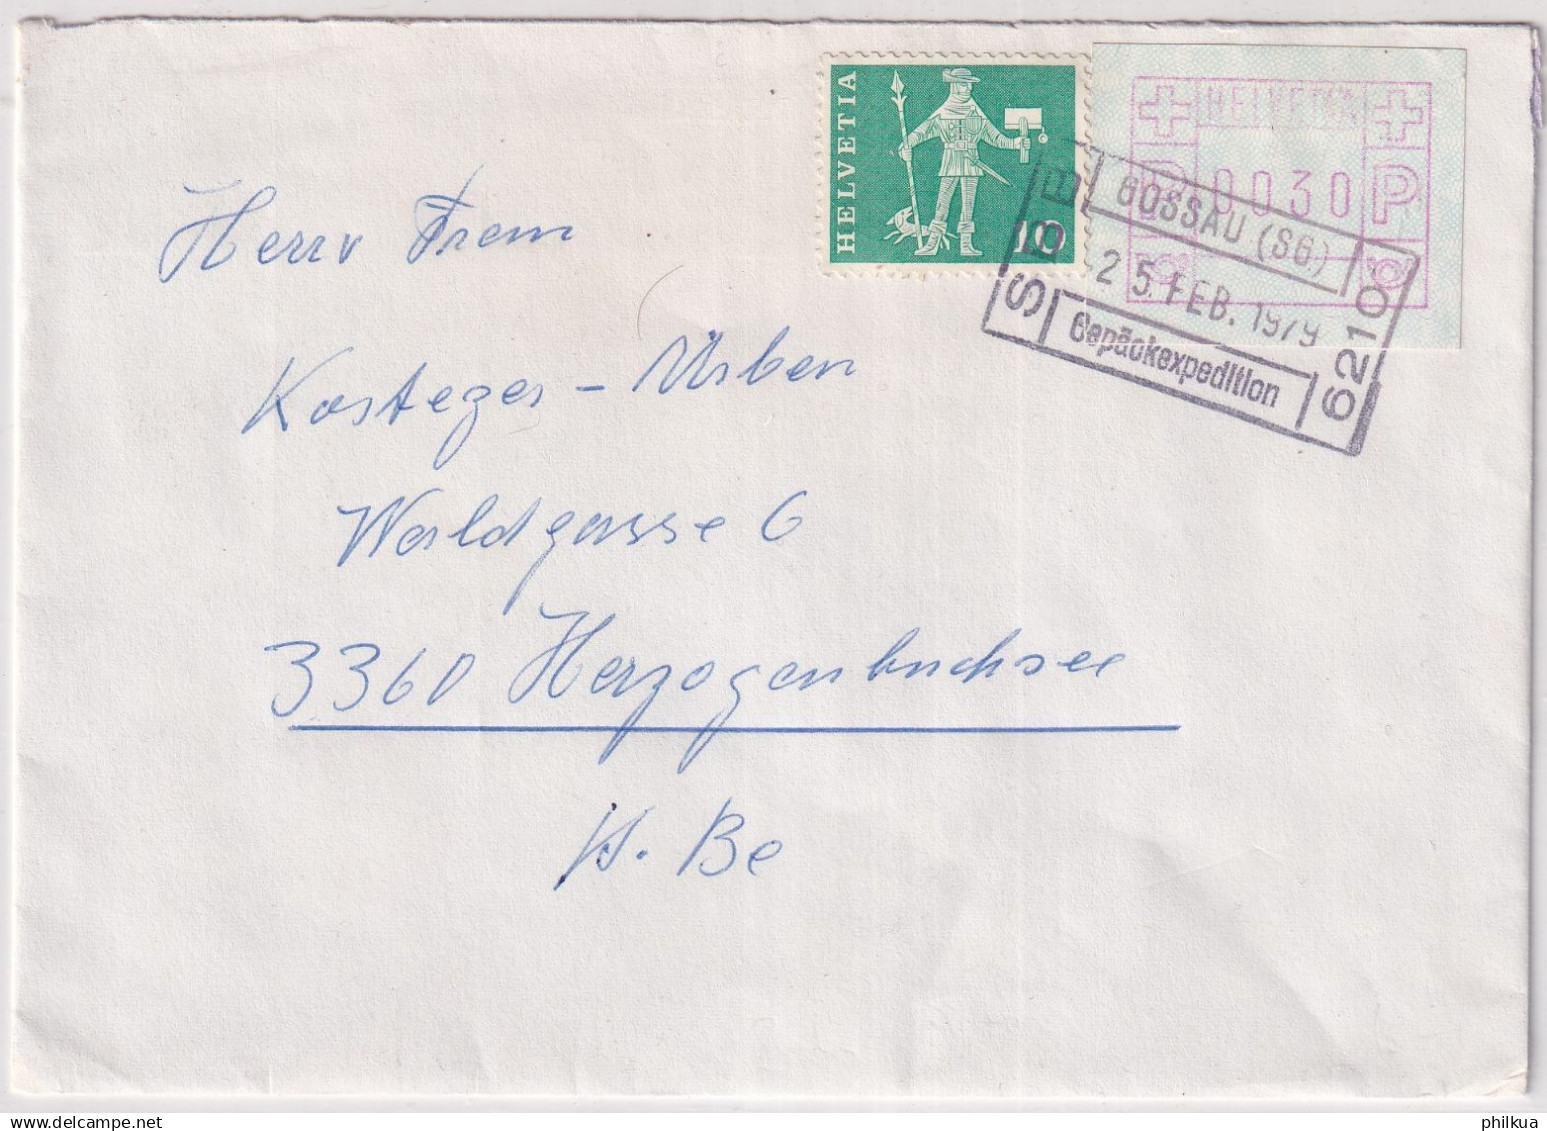 HELVETIA
10
HELVETIA
P 0030 P
SBB
GOSSAU (SG)
25. FEB. 1979
Gepäckexpedition
6210
Herrn Frem
Kosteger - Urben
Waldgasse 6
3360 Herzogenbuchsee
Kt. Be
philkua